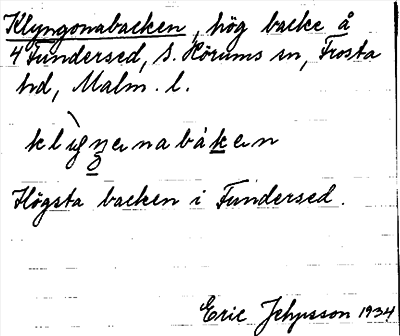 Klyngonabacken, hög backe å
4 Fundersed, S. Hörums sn, Frosta
hd, Malm. l.
Högsta backen i Fundersed.
Eric Jepsson 1934